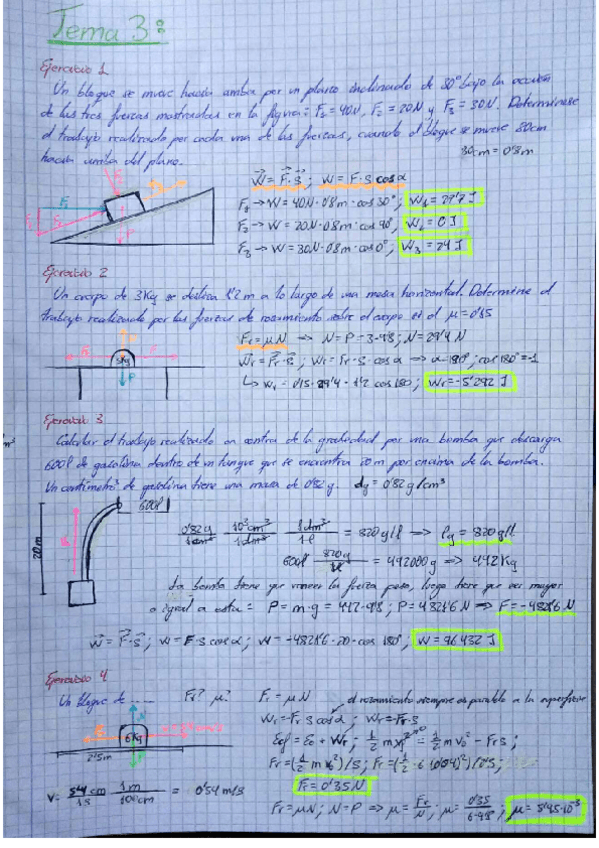 Tema 3:
Ejercicio 1
Un bloque se mueve hacia arriba por un plano inclinado de 30° bajo la acción
de las tres fuerzas mostradas en la figura: F₁ = 40N, F₂ = 20N y F₃ = 30N. Determínese
el trabajo realizado por cada una de las fuerzas, cuando el bloque se mueve 80cm
hacia arriba del plano.
80cm = 0'8m
W = F·S ; W = F·S cosα
F₁ → W = 40N·0'8m·cos30°; W₁ = 27'7 J
F₂ → W = 20N·0'8m·cos 90°; W₂ = 0 J
F₃ → W = 30N·0'8m·cos0°; W₃ = 24 J
P
Ejercicio 2
Un cuerpo de 3Kg se desliza 1'2 m a lo largo de una mesa horizontal. Determine el
trabajo realizado por las fuerzas de rozamiento sobre el cuerpo si el μ = 0'15
Fr = μN → N = P = 3·9'8; N = 29'4 N
Wr = Fr·S; Wr = Fr·S·cosα → α = 180°; cos180° = -1
↳ Wr = 0'15·29'4·1'2 cos180; Wr = -5'292 J
3Kg
P
Ejercicio 3
Calcular el trabajo realizado en contra de la gravedad por una bomba que descarga
600l de gasolina dentro de un tanque que se encuentra 20m por encima de la bomba.
Un centímetro³ de gasolina tiene una masa de 0'82g. dg = 0'82 g/cm³
600l
20m
0'82g/1cm³ 10³cm³/1dm³ 1dm³/1l = 820 g/l ⇒ ρg = 820 g/l
600l 820g/1l = 492000g ⇒ 492Kg
La bomba tiene que vencer la fuerza peso, luego tiene que ser mayor
o igual a esta: P = m·g = 492·9'8; P = 4821'6 N ⇒ F = -4821'6 N
W = F·S; W = F·S cosα; W = -4821'6·20·cos 180°; W = 96432 J
Ejercicio 4
Un bloque de ...... Fr? μ? Fr = μN
el rozamiento siempre es paralelo a la superficie
Wr = Fr S cosα; Wr = -Fr·S
6Kg
2'5m
Fr = 0'35N
V: 54 cm/1s 1m/100cm = 0'54 m/s
Fr = μN; N = P ⇒ μ = Fr/N; μ = 0'35/6·9'8; μ = 5'95·10⁻³